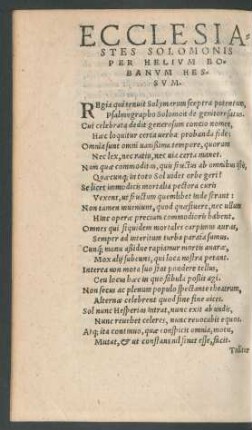 ECCLESIA-
STES SOLOMONIS
PER HELIVM EO-
BANVM HES-
SVM.
REgia qui tenuit Solymorum sceptra potentum,
Psalmographo Solomon de genitore satus.
Cui celebrata dedit generosum concio nomen,
Haec loquitur certa verba probanda fide,
Omnia sunt omni vanissima tempore, quorum
Nec lex, nec ratio, nec via certa manet.
Nam quae commoditas, quis fructus ab omnibus istis,
Quaecunque in toto Sol videt orbe geri?
Se licet immodicis mortalia pectora curis
Vexent, ut fructum quemlibet inde ferant:
Non tamen inueniunt, quod quaesiuere, nec ullum
Hinc operae precium commoditatis habent.
Omnis qui siquidem mortales carpimus auras,
Semper ad interitum turba parata sumus.
Cunque manu assidue rapiamur mortis auarae,
Mox alij subeunt, qui loca nostra petant.
Interea non mota suo stat pondere tellus,
Ceu locus haec in quo fabula possit agi.
Non secus ac plenum populo spectante theatrum,
Alternae celebrent quod sine fine vices.
Sol nunc Hesperias intrat, nunc exit ab undis,
Nunc reuehit celeres, nunc reuocabit equos.
Atque ita continuo, quae conspicis omnia, motu,
Mutat, & ut constans nil sinat esse, facit.